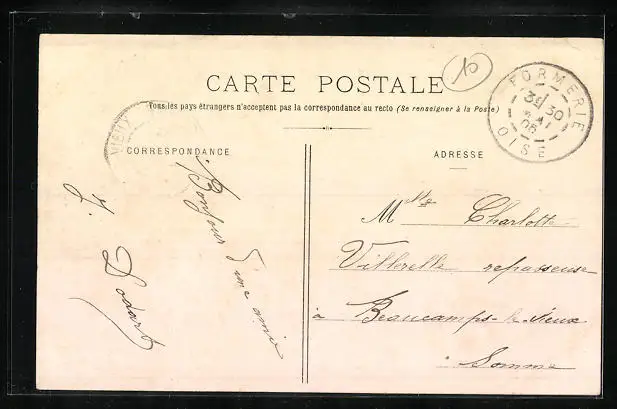 CARTE POSTALE
Tous les pays étrangers n'acceptent pas la correspondance au recto (Se renseigner à la Poste)
10
FORMERIE
3E 30
MAI
06
OISE
VIEUX
CORRESPONDANCE
Bonjour d'une amie
Y. Dodart
ADRESSE
Mlle Charlotte
Villerelle repasseuse
à Beaucamps-le-Vieux
Somme